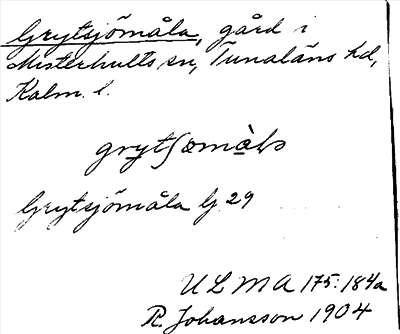 Grytsjömåla, gård i
Misterhults sn, Tunaläns hd,
Kalm. l.
grytʃömåla
Grytsjömåla Gj 29
ULMA 175:184a
R. Johansson 1904